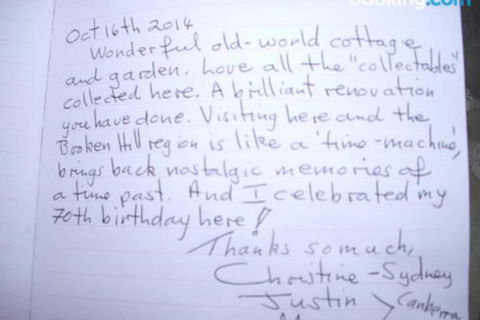 booking.com
Oct 16th 2014
Wonderful old-world cottage
and garden. Love all the "collectables"
collected here. A brilliant renovation
you have done. Visiting here and the
Broken Hill region is like a 'time-machine',
brings back nostalgic memories of
a time past. And I celebrated my
70th birthday here!
Thanks so much,
Christine - Sydney
Justin > Canberra